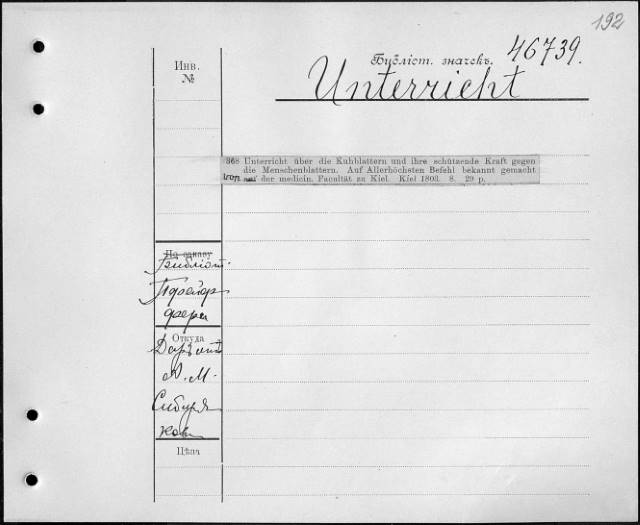 192
Инв.
№
Библіот. значекъ.
46739.
Unterricht
368 Unterricht über die Kuhblattern und ihre schützende Kraft gegen
die Menschenblattern. Auf Allerhöchsten Befehl bekannt gemacht
von der medicin. Facultät zu Kiel. Kiel 1803. 8. 29 p.
По
Библіот.
Пфейф
фера
Откуда
Даръ отъ
А. М.
Сибиря
кова
Цѣна